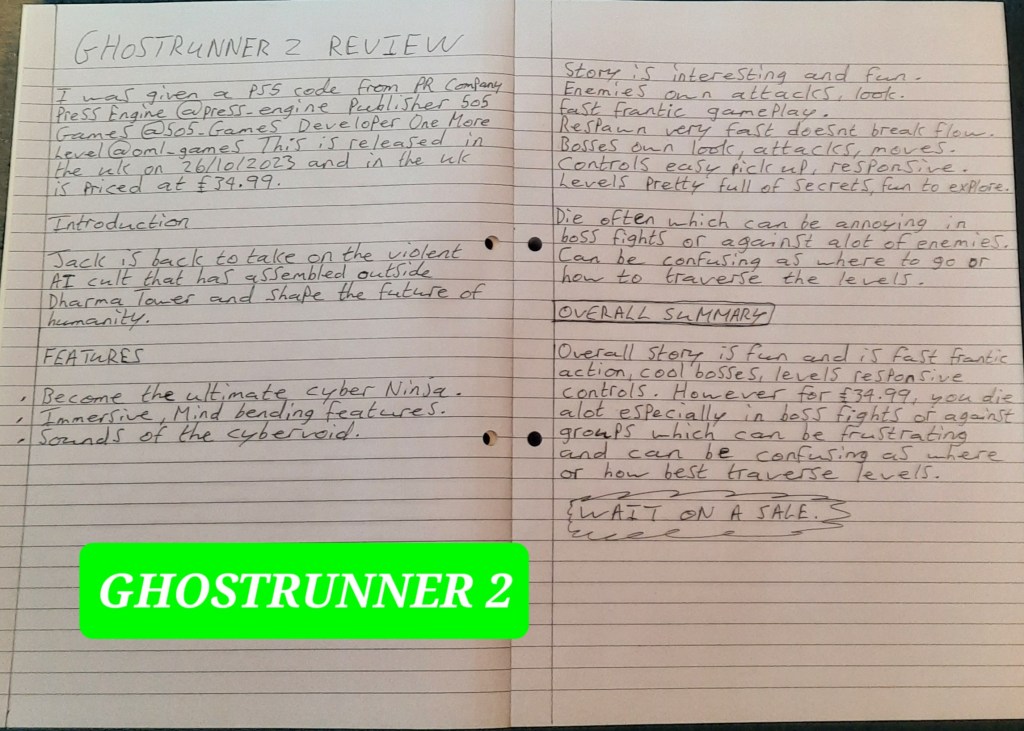 GHOSTRUNNER 2 REVIEW
I was given a PS5 code from PR Company
Press Engine @press_engine Publisher 505
Games @505_Games Developer One More
Level @oml_games This is released in
the uk on 26/10/2023 and in the uk
is priced at £34.99.
Introduction
Jack is back to take on the violent
AI cult that has assembled outside
Dharma Tower and shape the future of
humanity.
FEATURES
. Become the ultimate cyber Ninja.
. Immersive, Mind bending features.
. Sounds of the cybervoid.
Story is interesting and fun.
Enemies own attacks, look.
Fast frantic gameplay.
Respawn very fast doesnt break flow.
Bosses own look, attacks, moves.
Controls easy pick up, responsive.
Levels pretty full of secrets, fun to explore.
Die often which can be annoying in
boss fights or against alot of enemies.
Can be confusing as where to go or
how to traverse the levels.
OVERALL SUMMARY
Overall story is fun and is fast frantic
action, cool bosses, levels responsive
controls. However for £34.99, you die
alot especially in boss fights or against
groups which can be frustrating
and can be confusing as where
or how best traverse levels.
WAIT ON A SALE.
GHOSTRUNNER 2